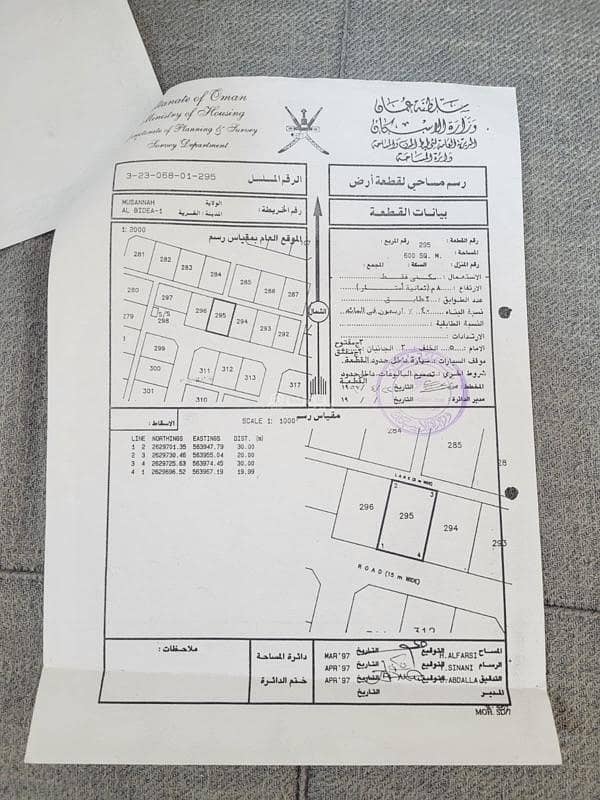 Sultanate of Oman
Ministry of Housing
Directorate of Planning & Survey
Survey Department
سلطنة عمان
وزارة الإسكان
دائرة المساحة
الرقم المسلسل
3-23-068-01-295
رسم مساحي لقطعة أرض
رقم الخريطة:
الولاية
المدينة/القرية
MUSANNAH
AL BIDEA-1
بيانات القطعة
الموقع العام بمقياس رسم
1:2000
281
282
283
284
285
286
287
280
279
S/S
298
296
295
294
292
299
300
301
310
311
312
313
317
الشمال
رقم القطعة: 295 رقم المربع:
المساحة: 600 SQ. M.
رقم المنزل: السكة: المجمع:
الاستعمال: سكني فقط
الارتفاع: ٨م (ثمانية أمتار)
عدد الطوابق:
نسبة البناء: ٤٠٪ أربعون في المائة
النسبة الطابقية:
الارتدادات:
الامام: ٥م الخلف: ٣م الجانبان
موقف السيارات: سيارة داخل حدود القطعة
شروط أخرى: تصميم البالوعات داخل حدود
القطعة
المخطط التاريخ
مدير الدائرة التاريخ / / ١٩
الاسقاط:
مقياس رسم
SCALE 1: 1000
LINE NORTHINGS EASTINGS DIST. (m)
1 2 2629701.35 563947.79 30.00
2 3 2629730.46 563955.04 20.00
3 4 2629725.63 563974.45 30.00
4 1 2629696.52 563967.19 19.99
284
285
28
LANE
296
295
294
293
1
2
3
4
ROAD (15 m WIDE)
312
ملاحظات:
دائرة المساحة
ختم الدائرة
MAR'97 التاريخ التوقيع H.ALFARSI المساح
APR'97 التاريخ التوقيع SINANI الرسام
APR'97 التاريخ التوقيع ABDALLA التدقيق
التاريخ المدير